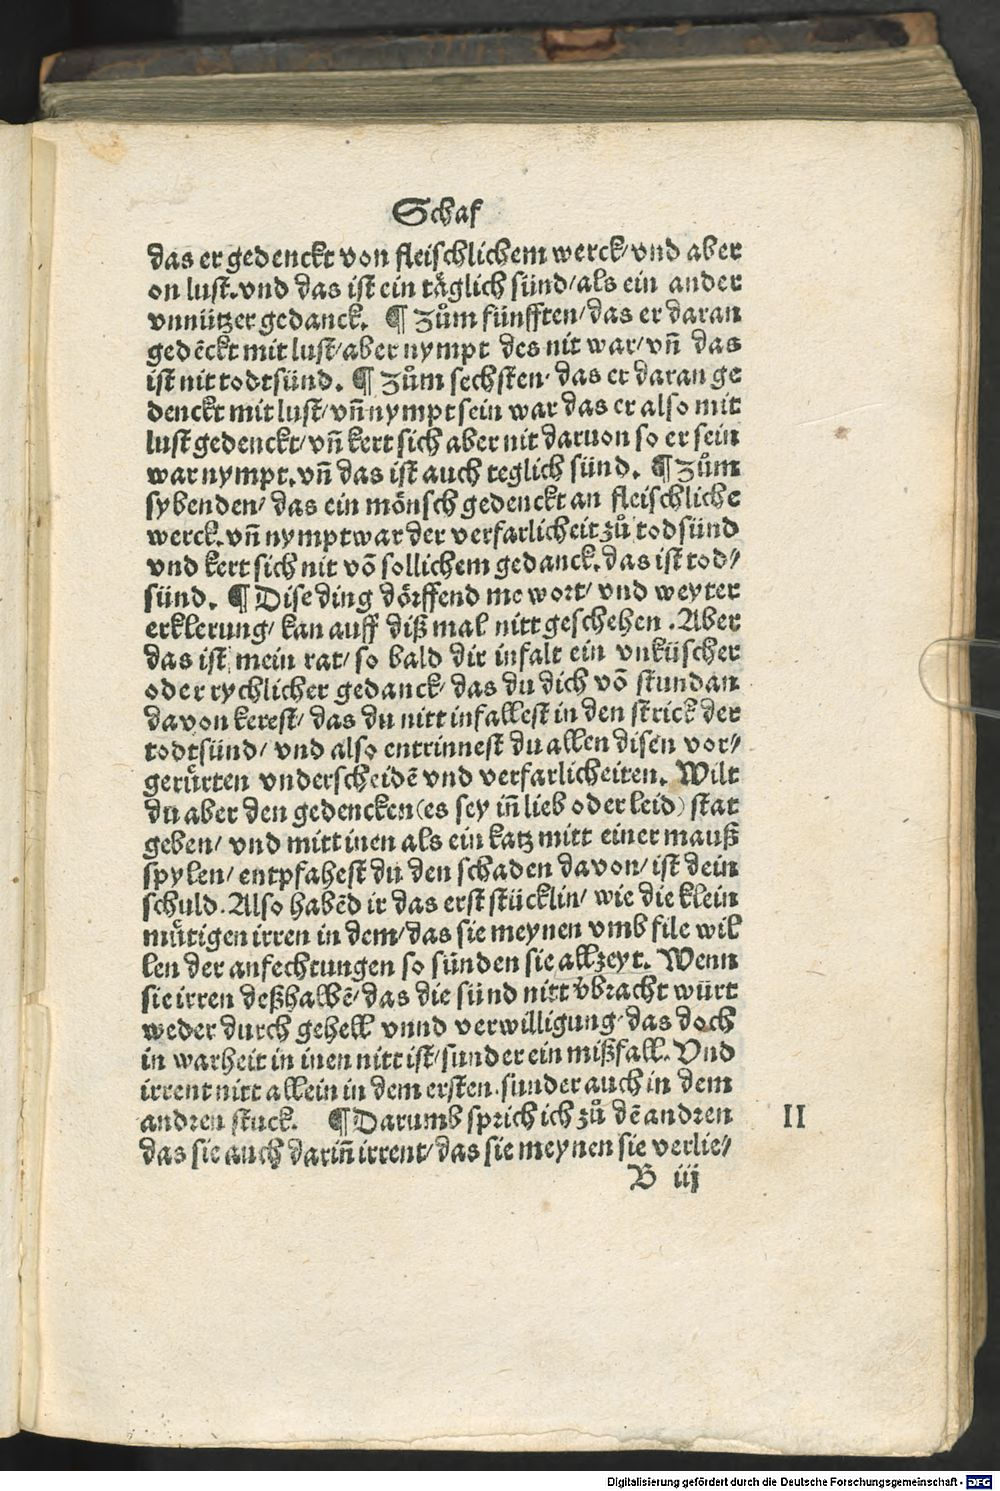 Schaf
das er gedenckt von fleischlichem werck/ vnd aber
on lust. vnd das ist ein täglich sünd/ als ein ander
vnnützer gedanck. ¶ Zům fünfften/ das er daran
gedēckt mit lust/ aber nympt des nit war/ vñ das
ist nit todtsünd. ¶ Zům sechsten/ das er daran ge
denckt mit lust/ vñ nympt sein war das er also mit
lust gedenckt/ vñ kert sich aber nit daruon so er sein
war nympt. vñ das ist auch teglich sünd. ¶ Zům
sybenden/ das ein mönsch gedenckt an fleischliche
werck. vñ nympt war der verfarlicheit zů todsünd
vnd kert sich nit vō sollichem gedanck. das ist tod/
sünd. ¶ Dise ding dörffend me wort/ vnd weyter
erklerung/ kan auff diß mal nitt geschehen. Aber
das ist mein rat/ so bald dir infalt ein vnküscher
oder rychlicher gedanck/ das du dich vō stund an
davon kerest/ das du nitt infallest in den strick der
todtsünd/ vnd also entrinnest du allen disen vor/
gerürten vnderscheidē vnd verfarlicheiten. Wilt
du aber den gedencken (es sey iñ lieb oder leid) stat
geben/ vnd mitt inen als ein katz mitt einer mauß
spylen/ entpfahest du den schaden davon/ ist dein
schuld. Also habēd ir das erst stücklin/ wie die klein
mütigen irren in dem/ das sie meynen vmb file wil
len der anfechtungen so sünden sie allzeyt. Wenn
sie irren deßhalbē/ das die sünd nitt vbracht würt
weder durch gehell vnnd verwilligung/ das doch
in warheit in inen nitt ist/ sunder ein mißfall. Vnd
irrent nitt allein in dem ersten. sunder auch in dem
andren stuck. ¶ Darumb sprich ich zů dē andren
II
das sie auch dariñ irrent/ das sie meynen sie verlie/
B iij
Digitalisierung gefördert durch die Deutsche Forschungsgemeinschaft - DFG